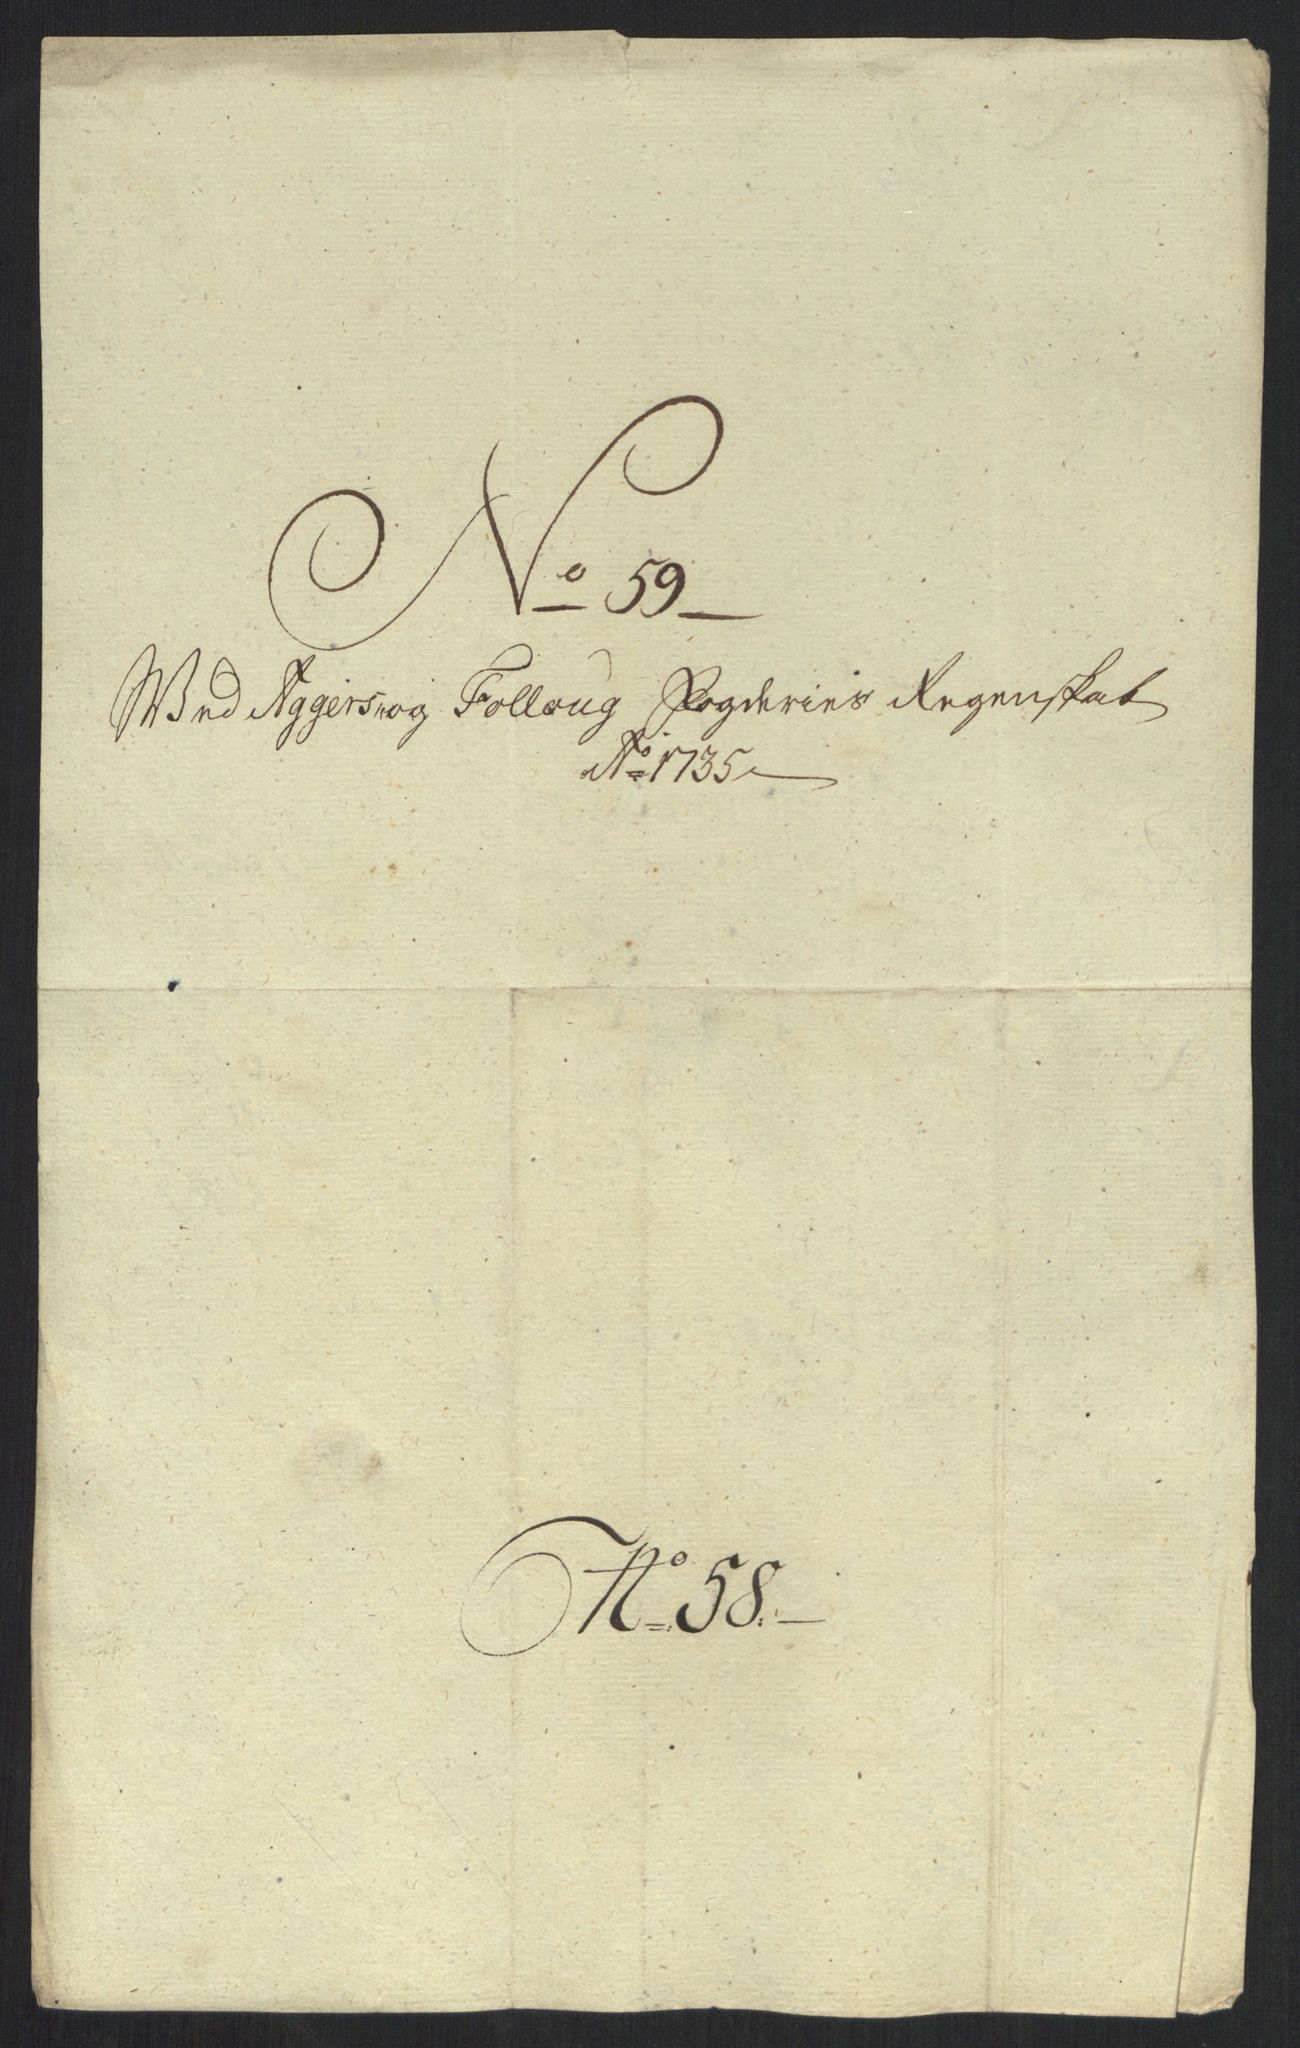 No 59
Wed Aggers og Folloug Fogderies Regenskab
Ao 1735
No 58.